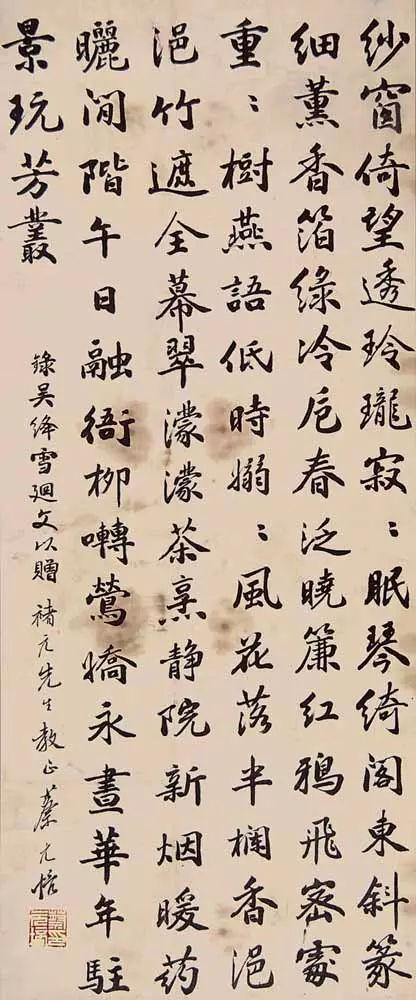 紗窗倚望透玲瓏寂〻眠琴綺閣東斜篆
細薰香箔綠冷卮春泛曉簾紅鴉飛密處
重〻樹燕語低時嫋〻風花落半欄香浥
浥竹遮全幕翠濛濛茶烹静院新烟暖药
曬閒階午日融衙柳囀鶯嬌永晝華年駐
景玩芳叢
錄吴絳雪廻文以贈 先生教正 蔡元